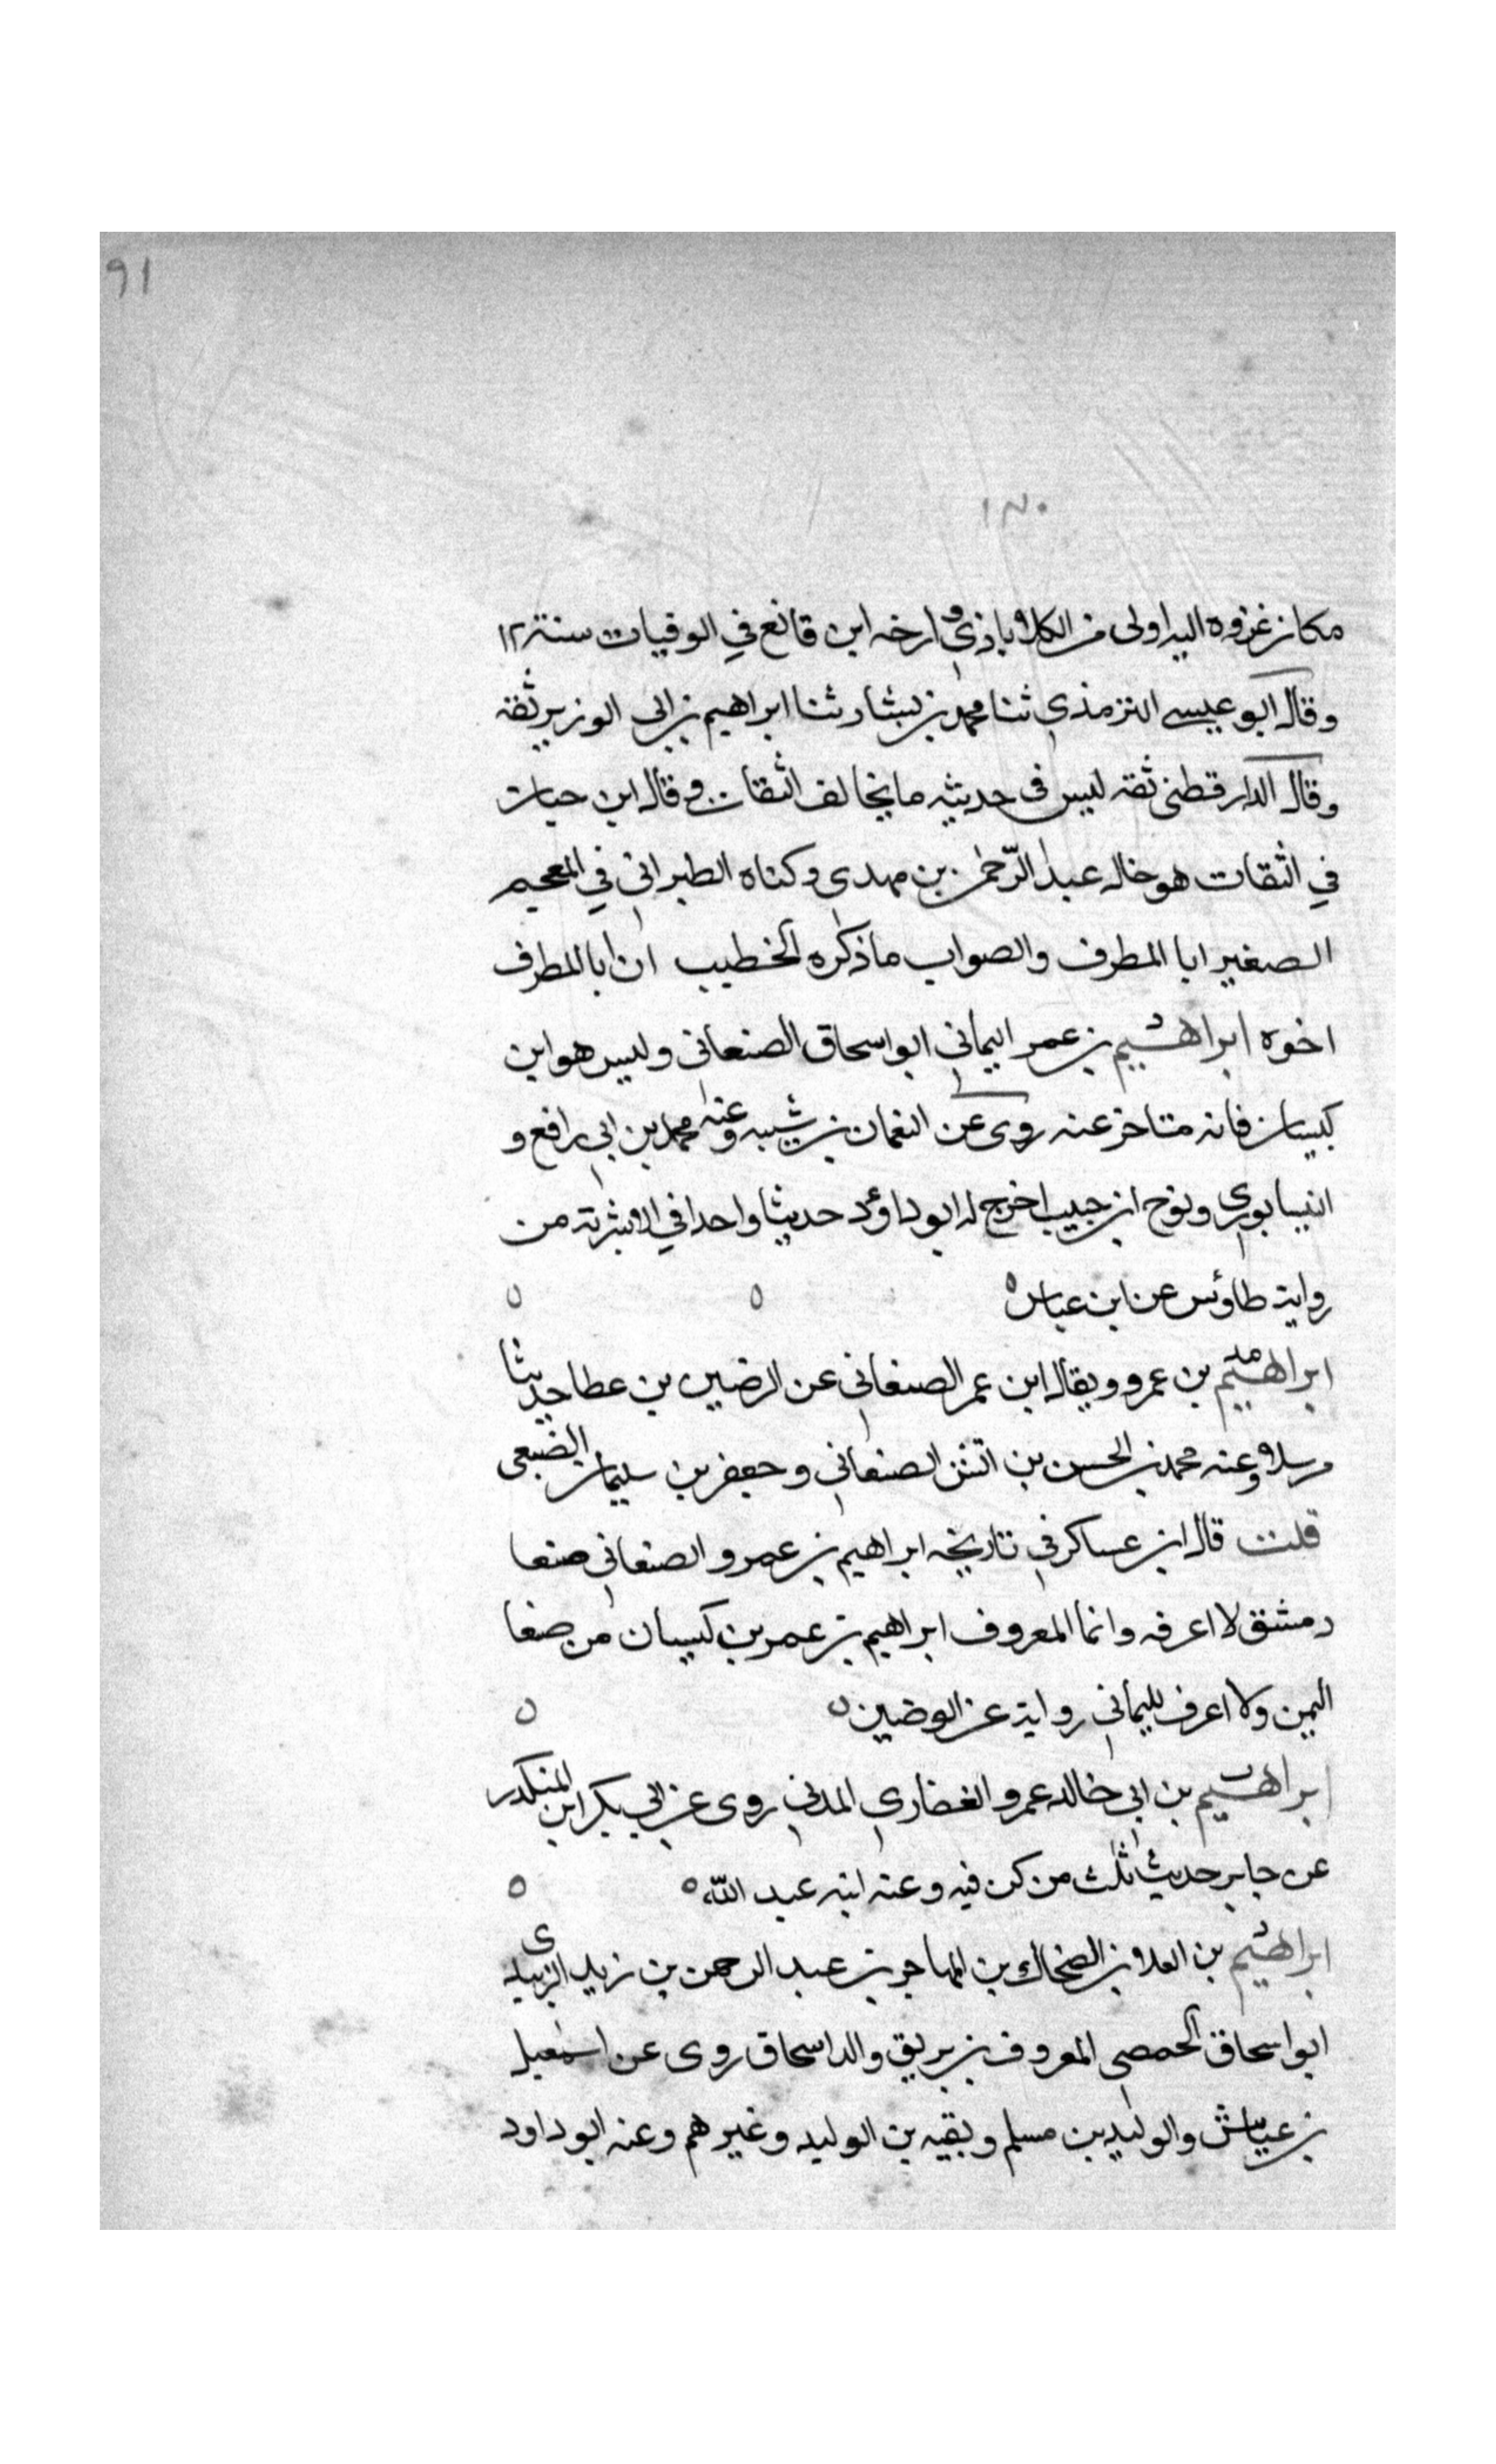 ٩١
١٣٠
مكان غزوه اليه اولى من الكلاباذي و ارخه ابن قانع في الوفيات سنة ٢١٢
وقال ابو عيسى الترمذي ثنا محمد بن بشار ثنا ابراهيم بن ابي الوزير ثقة
وقال الدارقطني ثقه ليس في حديثه ما يخالف الثقات وقال ابن حبان
في الثقات هو خال عبد الرّحمن بن مهدى وكناه الطبراني في المعجم
الصغير ابا المطرف والصواب ما ذكره الخطيب ان ابا المطرف
اخوه ابراهيم بن عمر اليماني ابو اسحاق الصنعاني وليس هو ابن
كيسان فانه متاخر عنه روى عن النعمان بن شيبه وعنه محمد بن ابي رافع و
النيسابوري ونوح ابن حبيب اخرج له ابو داؤد حديثا واحدا في الاشربة من
رواية طاوٴس عن ابن عباس ه
ابراهيم بن عمرو ويقال ابن عمر الصنعاني عن الوضين بن عطا حديثا
مرسلا وعنه محمد بن الحسن بن اتش الصنعاني وجعفر بن سليمان الضبعي
قلت قال ابن عساكر في تاريخه ابراهيم بن عمرو الصنعاني صنعا
دمشق لا اعرفه وانما المعروف ابراهيم بن عمر بن كيسان من صنعا
اليمن ولا اعرف لليماني رواية عن الوضين ه
ابراهيم بن ابي خالد عمرو الغفاري المدني روى عن ابي بكر ابن المنكدر
عن جابر حديث ثلث من كن فيه وعنه ابنه عبد الله ه
ابراهيم بن العلا بن الضحاك بن المهاجر بن عبد الرحمن بن زيد الزبيدى
ابو اسحاق الحمصي المعروف بن بريق والد اسحاق روى عن اسمعيل
بن عياش والوليد بن مسلم وبقيه بن الوليد وغيرهم وعنه ابو داود